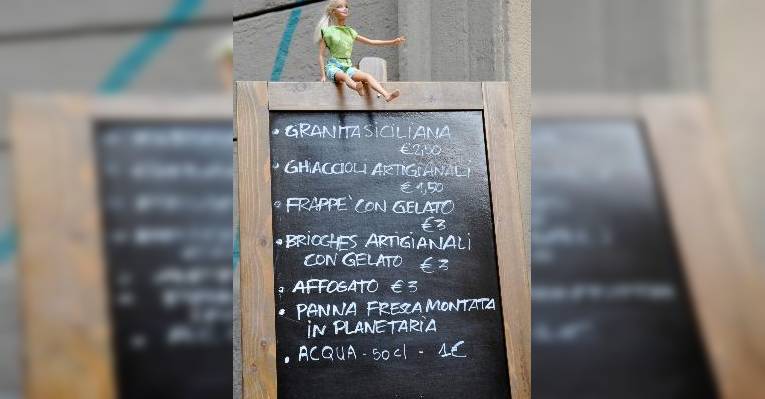 • GRANITA SICILIANA
€2,50
• GHIACCIOLI ARTIGIANALI
€1,50
• FRAPPE' CON GELATO
€3
• BRIOCHES ARTIGIANALI
CON GELATO €3
• AFFOGATO €3
• PANNA FRESCA MONTATA
IN PLANETARIA
• ACQUA - 50 cl - 1€